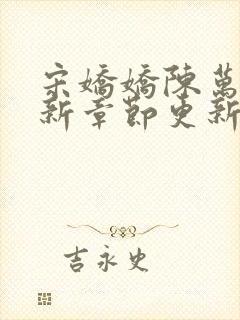 宋嬌嬌陳萬
新章節更新
吉永史